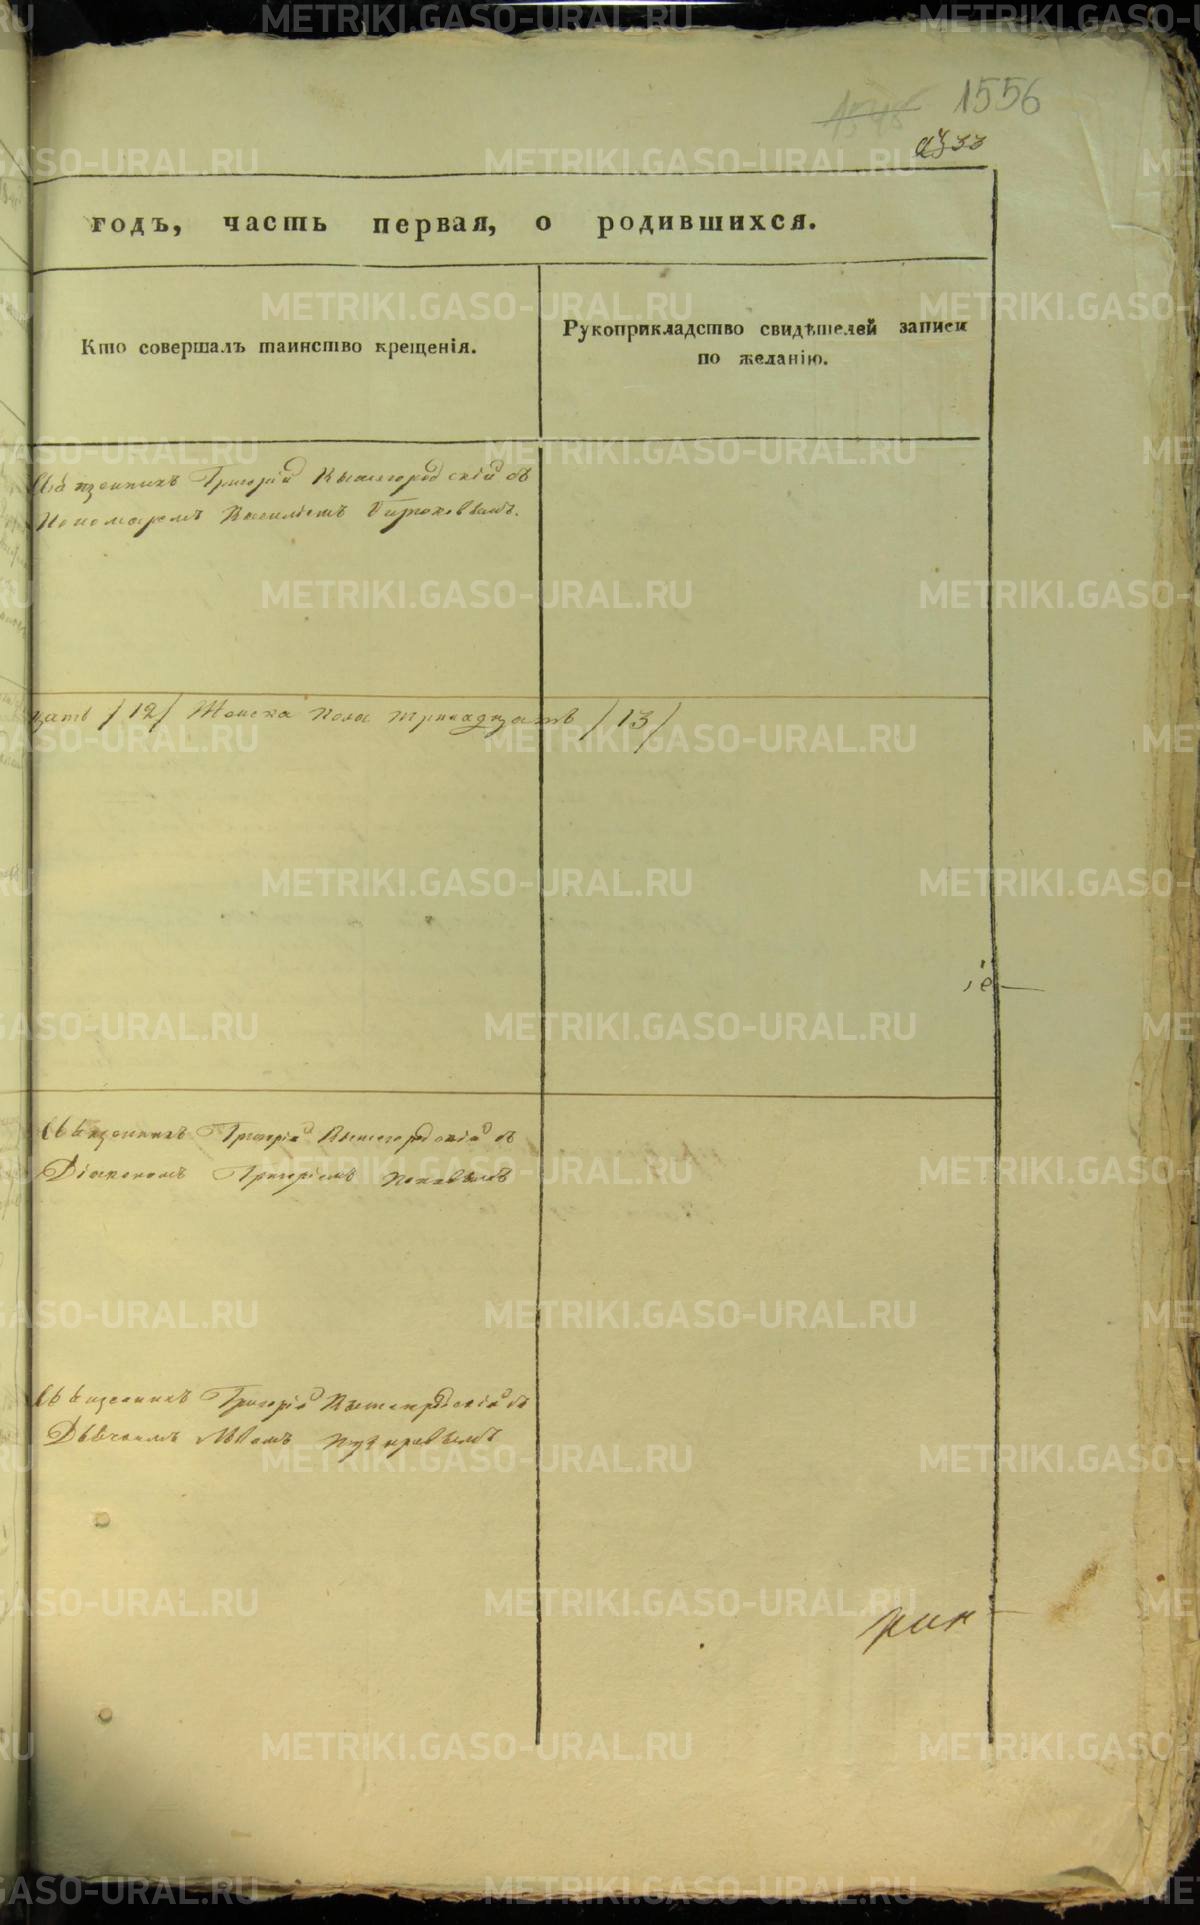 1556
годъ, часть первая, о родившихся.
Кто совершалъ таинство крещенія.
Рукоприкладство свидѣтелей записи
по желанію.
Священникъ Григорій Вышегородскій съ
Пономаремъ Василіемъ Бирюковымъ.
цать /12/ Женска пола тринадцать /13/
Священникъ Григорій Вышегородскій съ
Діакономъ Григоріемъ Поповымъ
Священникъ Григорій Вышегородскій съ
Дьячкомъ
METRIKI.GASO-URAL.RU